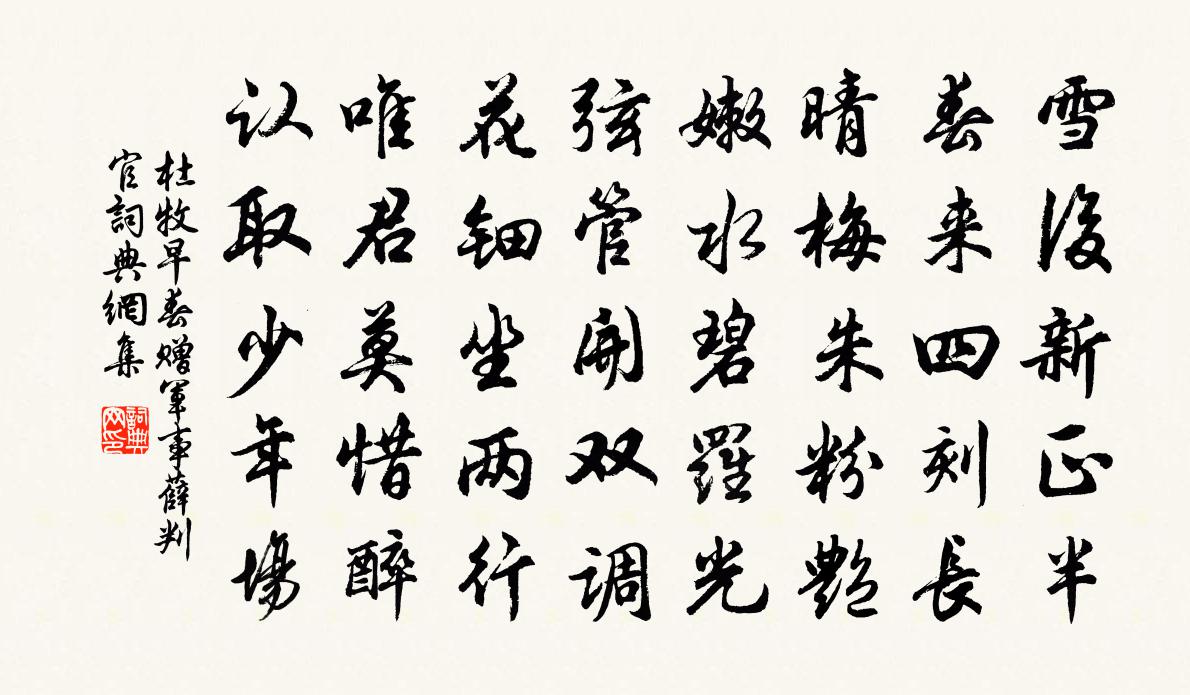 雪後新正半
春来四刻長
晴梅朱粉艶
嫩水碧羅光
弦管開双调
花钿坐两行
唯君莫惜醉
认取少年場
杜牧早春赠軍事薛判
官詞典網集
詞典
网印